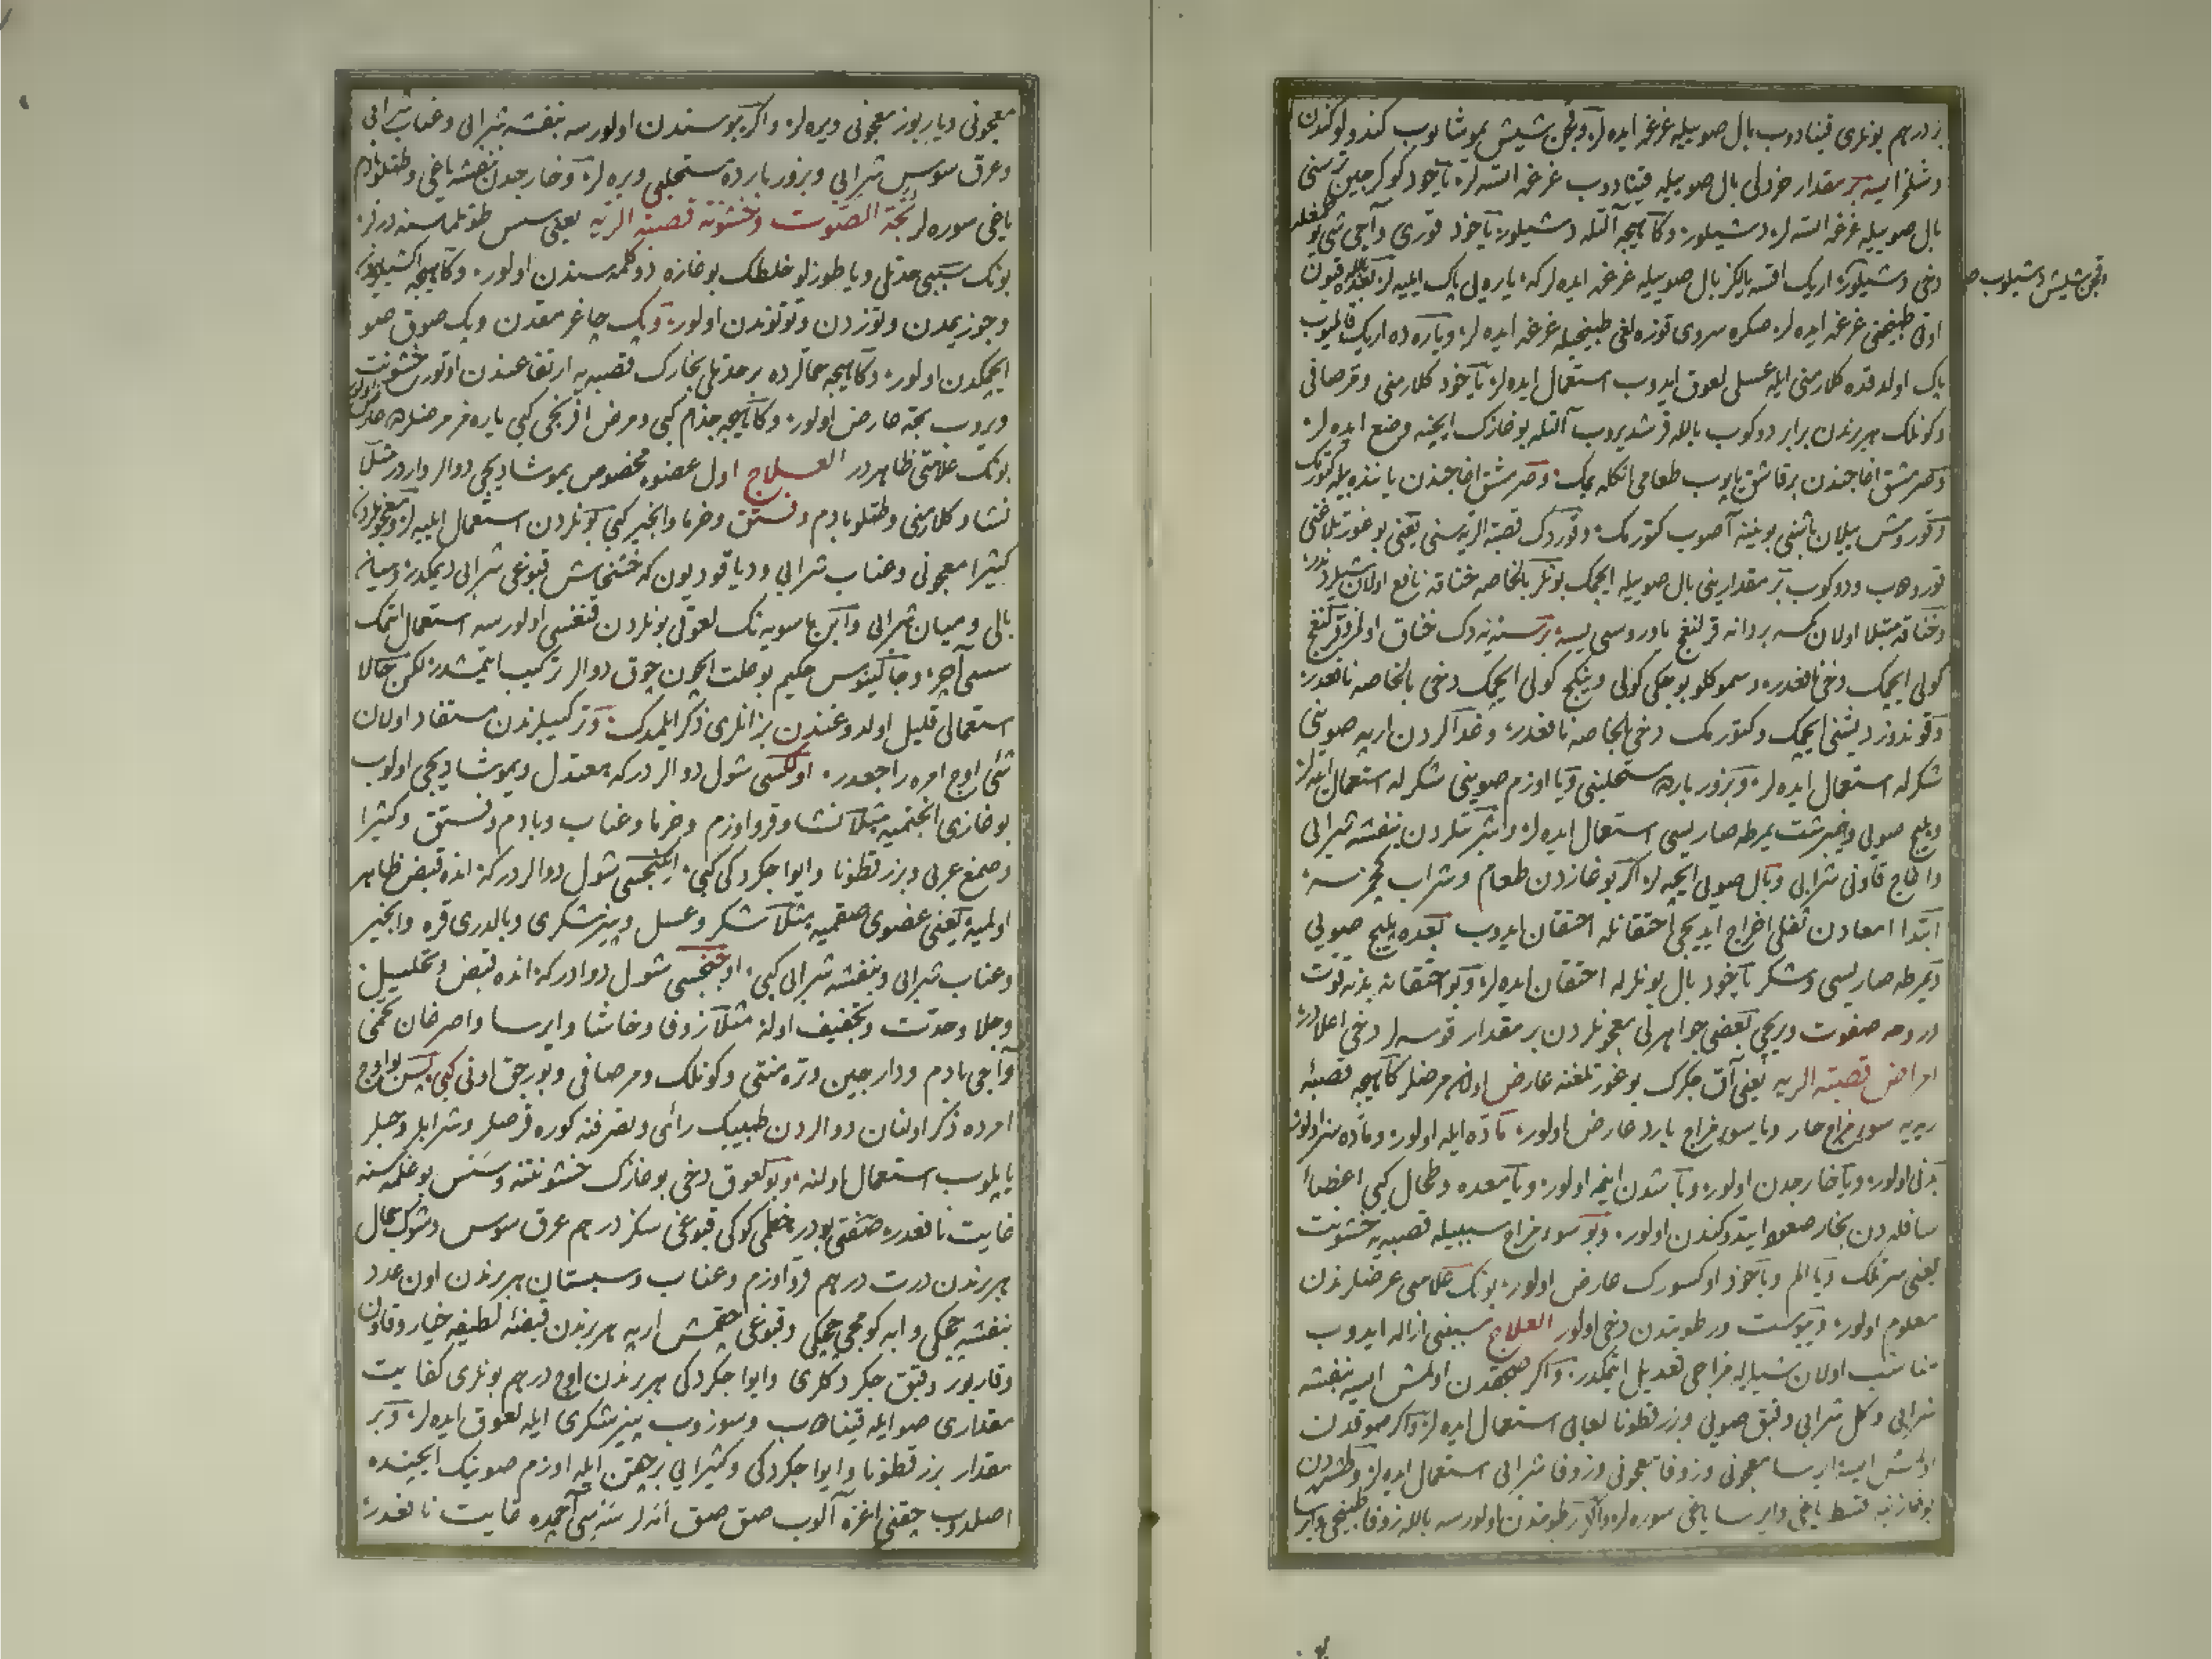 بر درهم بونلری قینادوب بال صوییله غرغره ایده لر وقچن شیش یموشایوب کندولوکندن
دشلمز ایسه بر مقدار خردلی بال صوییله قینادوب غرغره ایتسه لر یاخود کوکرجین ترسنی
بال صوییله غرغره ایتسه لر دشیلور وکاهیجه آلتله دشیلور یاخود قوری وآجی شی یوتمغله
دخی دشیلور اریک اقسه یالکز بال صوییله غرغره ایده لرکه یاره یی پاک ایلیه لر بعده قیون
وقچن شیش دشیلوب
اوتی طبیخنی غرغره ایده لر صکره سردی قوزه لغی طبیخیله غرغره ایده لر ویاره ده اریک قالمیوب
پاک اولدقده کل ارمنی ایله عسلی لعوق ایدوب استعمال ایده لر یاخود کل ارمنی ومرصافی
وکونلک هر برندن برابر دوکوب بالله قرشدیروب آلتله بوغازک ایچنه وضع ایده لر
ومر مشق اغاجندن بر قاشق یاپوب طعامی انکله یمک ومر مشق اغاجندن یاننده بیله کتورمک
وقورومش ییلان باشنی بوینینه آصوب کتورمک وقوردک قصبة الریه سنی یعنی بوغورتلاغنی
قورودوب ودوکوب بر مقدارینی بال صوییله ایچمک بونلر بالخاصه خناقه نافع اولان شیلردندر
وخناقه مبتلا اولان کمسه بر دانه قرلنغج یاوروسی یسه بر سنه یه دک خناق اولمز وقرلنغج
کولی ایچمک دخی نافعدر وسموکلو بوجک کولی وینکج کولی ایچمک دخی بالخاصه نافعدر
وقوندوز دیشنی ایچمک وکتورمک دخی بالخاصه نافعدر وغدالردن ارپه صویینی
شکرله استعمال ایده لر وبزور بارده مستحلبنی ویا اوزم صویینی شکرله استعمال ایده لر
وپلیج صویی ونیمبرشت یمرطه صاریسی استعمال ایده لر وشربتلردن بنفشه شرابی
واغاج قاونی شرابی وبال صویی ایچه لر اکر بوغازدن طعام وشراب کچمزسه
ابتدا امعادن ثفلی اخراج ایدیجی احتقانله احتقان ایدوب بعده پلیج صویی
ویمرطه صاریسی وشکر یاخود بال بونلرله احتقان ایده لر وبو احتقانه بدنه قوت
وروحه صفوت ویریجی بعضی جواهرلی معجونلردن بر مقدار قوسه لر دخی اعلادر
امراض قصبة الریه یعنی آق جکرک بوغورتلغنه عارض اولان مرضلر کاهیجه قصبهٔ
ریه یه سوء مزاج حار ویا سوء مزاج بارد عارض اولور ماده ایله اولور وماده سز اولور
بدنی اولور ویا خارجدن اولور ویا باشدن اینمه اولور ویا معده وطحال کبی اعضاء
سافله دن بخار صعود ایتدوکندن اولور وبو سوء مزاج سببیله قصبه یه خشونت
یعنی سرتلک ویا الم ویاخود اوکسورک عارض اولور بونک علامتی عرضلرندن
معلوم اولور ویبوست ورطوبتدن دخی اولور العلاج سببنی ازاله ایدوب
مناسب اولان شیلرله مزاجی تعدیل ایتمکدر واکر صیجقدن اولمش ایسه بنفشه
شرابی وکل شرابی وقبق صویی وبزر قطونا لعابی استعمال ایده لر واکر صوقدن
اولمش ایسه ایرسا معجونی وزوفا معجونی وزوفا شرابی استعمال ایده لر وطشره دن
بوغازینه قسط یاغی وایرسا یاغی سوره لر واکر رطوبتدن اولورسه بالله زوفا طبیخی وایرسا
معجونی ودیاریوز معجونی ویره لر واکر یبوستدن اولورسه بنفشه شرابی وعناب شرابی
وعرق سوس شرابی وبزور بارده مستحلبی ویره لر وخارجدن بنفشه یاغی وطتلو بادم
یاغی سوره لر بحة الصوت وخشونة قصبة الریه یعنی سس طوتلمسنه درلر
بونک سببی حدتلی ویا طوزلو خلطک بوغازه دوکلمه سندن اولور وکاهیجه اکشیلردن
وجوز یمدن وتوزدن وتوتوندن اولور وپک چاغرمقدن وپک صوق صو
ایچمکدن اولور وکاهیجه حمالرده بر حدتلی بخارک قصبه یه ارتفاعندن اوتوری خشونت
ویروب بحه عارض اولور وکاهیجه جذام کبی ومرض افرنجی کبی یاره لر مرضلرده
بونک علامتی ظاهردر العلاج اول عضوه مخصوص یموشادیجی دوالر واردر مثلا
نشا وکل ارمنی وطتلو بادم وفستق وخرما وانجیر کبی بونلردن استعمال ایلیه لر ومعجونلردن
کثیرا معجونی وعناب شرابی ودیاقودیون که خشخاش قبوغی شرابی دیمکدر ومیانه
بالی ومیان شرابی وآبن ماسویه نک لعوقی بونلردن قنغیسی اولورسه استعمال ایتمک
سسی آچر وجالینوس حکیم بو علت ایچون چوق دوالر ترکیب ایتمشدر لکن حالا
استعمالی قلیل اولدوغندن بز انلری ذکر ایلمدک وترکیبلرندن مستفاد اولان
شی اوچ امره راجعدر اولکیسی شول دوالردرکه معتدل ویموشادیجی اولوب
بوغازی انجتمیه مثلا نشا وقرو اوزم وخرما وعناب وبادم وفستق وکثیرا
وصمغ عربی وبزر قطونا وایوا جکردکی کبی ایکنجیسی شول دوالردرکه انده قبض ظاهر
اولمیه یعنی عضوی صقمیه مثلا شکر وعسل وپنیر شکری وبالدری قره وانجیر
وعناب شرابی وبنفشه شرابی کبی اوچنجیسی شول دوادرکه انده قبض وتحلیل
وجلا وحدت وتجفیف اوله مثلا زوفا وحاشا وایرسا واصرغان تخمی
وآجی بادم ودارچین وتره منتی وکونلک ومرصافی وبورجق اونی کبی پس بو اوچ
امرده ذکر اولنان دوالردن طبیبک رأی وتصرفنه کوره قرصلر وشرابلر وحبلر
یاپلوب استعمال اولنه وبو لعوق دخی بوغازک خشونتنه وسس بوغلمسنه
غایت نافعدر صنعتی بودر خطمی کوکی قبوغی سکز درهم عرق سوس
هر برندن درت درهم قرو اوزم وعناب وسبستان هر برندن اون عدد
بنفشه چیچکی وابه کومجی چیچکی وقبوغی چقمش ارپه هر برندن قبضهٔ لطیفه خیار وقاون
وقارپوز وقبق جکردکلری وایوا جکردکی هر برندن اوچ درهم بونلری کفایت
مقداری صو ایله قینادوب وسوزوب پنیر شکری ایله لعوق ایده لر وبر
مقدار بزر قطونا وایوا جکردکی وکثیرایی بر چقین ایله اوزم صویینک ایچنده
اصلدوب چقنی اغزه آلوب صق صق امه لر سسی آچمده غایت نافعدر